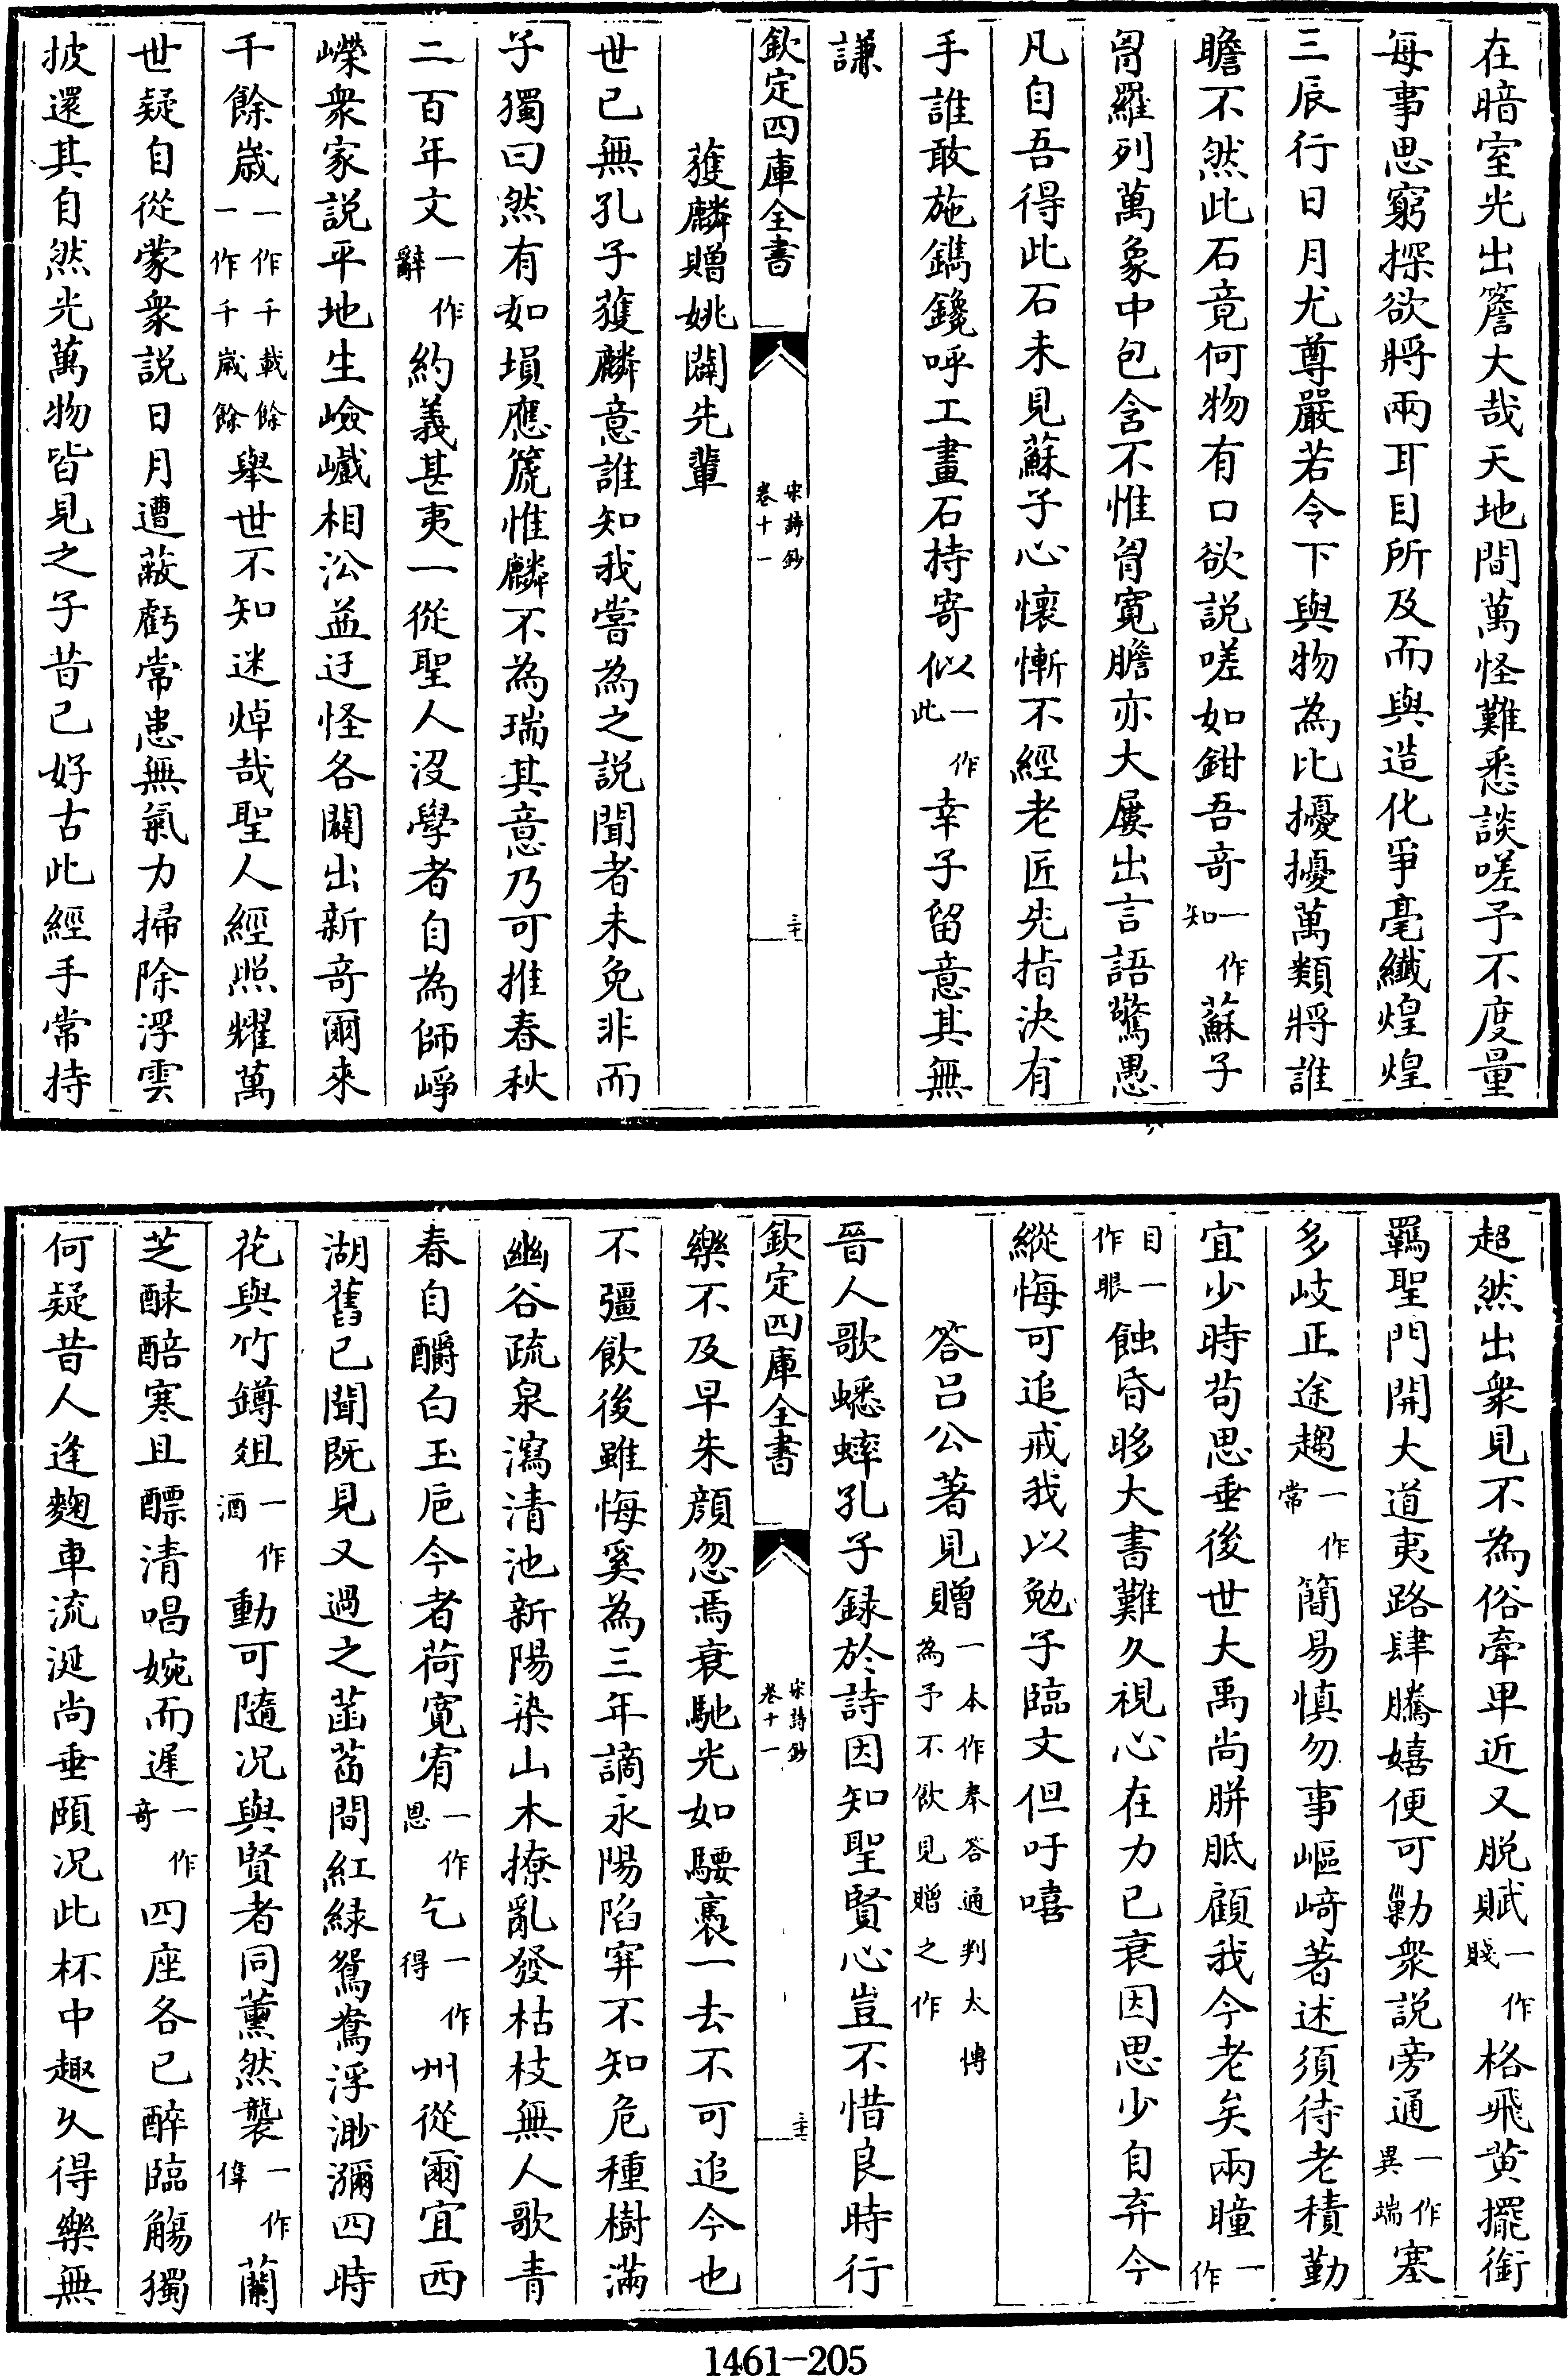 在暗室光出簷大哉天地間萬怪難悉談嗟予不度量
每事思窮探欲將兩耳目所及而與造化爭毫纖煌煌
三辰行日月尤尊嚴若令下與物為比擾擾萬類將誰
瞻不然此石竟何物有口欲説嗟如鉗吾竒一作知蘇子
胷羅列萬象中包含不惟胷寛膽亦大屢出言語驚愚
凡自吾得此石未見蘇子心懷慚不經老匠先指決有
手誰敢施鐫鑱呼工畫石持寄似一作以此幸子留意其無
謙
欽定四庫全書
宋詩鈔
卷十一
三十
獲麟贈姚闢先輩
世已無孔子獲麟意誰知我嘗為之説聞者未免非而
子獨曰然有如塤應箎惟麟不為瑞其意乃可推春秋
二百年文一作辭約義甚夷一從聖人沒學者自為師崢
嶸衆家説平地生嶮巇相沿益迂怪各闢出新竒爾來
千餘嵗一作千載餘一作千嵗餘舉世不知迷焯哉聖人經照耀萬
世疑自從蒙衆説日月遭蔽虧常患無氣力掃除浮雲
披還其自然光萬物皆見之子昔已好古此經手常持
超然出衆見不為俗牽卑近又脱賦一作賤格飛黄擺銜
羈聖門開大道夷路肆騰嬉便可勦衆説旁通一作異端塞
多岐正途趨一作常簡易慎勿事嶇﨑著述須待老積勤
宜少時苟思垂後世大禹尚胼胝顧我今老矣兩瞳一作
目一作眼蝕昏眵大書難久視心在力已衰因思少自弃今
縱悔可追戒我以勉子臨文但吁嘻
答呂公著見贈一本作奉答通判太博為予不飲見贈之作
晉人歌蟋蟀孔子録於詩因知聖賢心豈不惜良時行
欽定四庫全書
宋詩鈔
卷十一
三十一
樂不及早朱顔忽焉衰馳光如騕褭一去不可追今也
不彊飲後雖悔奚為三年謫永陽陷穽不知危種樹滿
幽谷疏泉瀉清池新陽染山木撩亂發枯枝無人歌青
春自釂白玉巵今者荷寛宥一作恩乞一作得州從爾宜西
湖舊已聞既見又過之菡萏間紅緑鴛鴦浮渺瀰四時
花與竹鐏俎一作酒動可隨况與賢者同薰然襲一作偉蘭
芝醁醅寒且醥清唱婉而遲一作竒四座各已醉臨觴獨
何疑昔人逢麴車流涎尚垂頤况此杯中趣久得樂無
1461-205